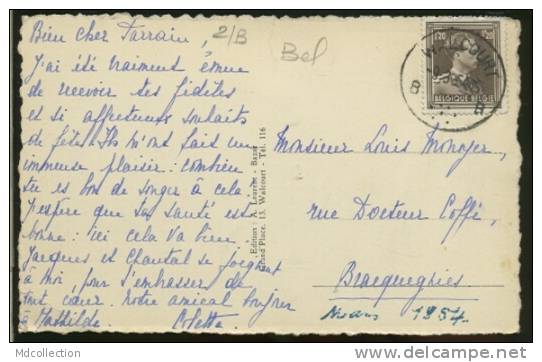 Bien cher Parrain,
2/B
Bel
J'ai été vraiment émue
de recevoir tes fidèles
et si affectueux souhaits
de fête. Ils m'ont fait un
immense plaisir : combien
tu es bon de songer à cela.
J'espère que ta santé est
bonne : ici cela va bien.
Jacques et Chantal se joignent
à moi, pour t'embrasser de
tout cœur. Notre amical bonjour
à Mathilde. Colette.
Edition : A. Laurent - Bazar
Grand Place, 13, Walcourt - Tél. 116
1.20 1.20
BELGIQUE BELGIË
WALCOURT
B B
Monsieur Louis Monoyer,
rue Docteur Coffé,
Bracquegnies
1954
© MDcollection
http://www.delcampe.net